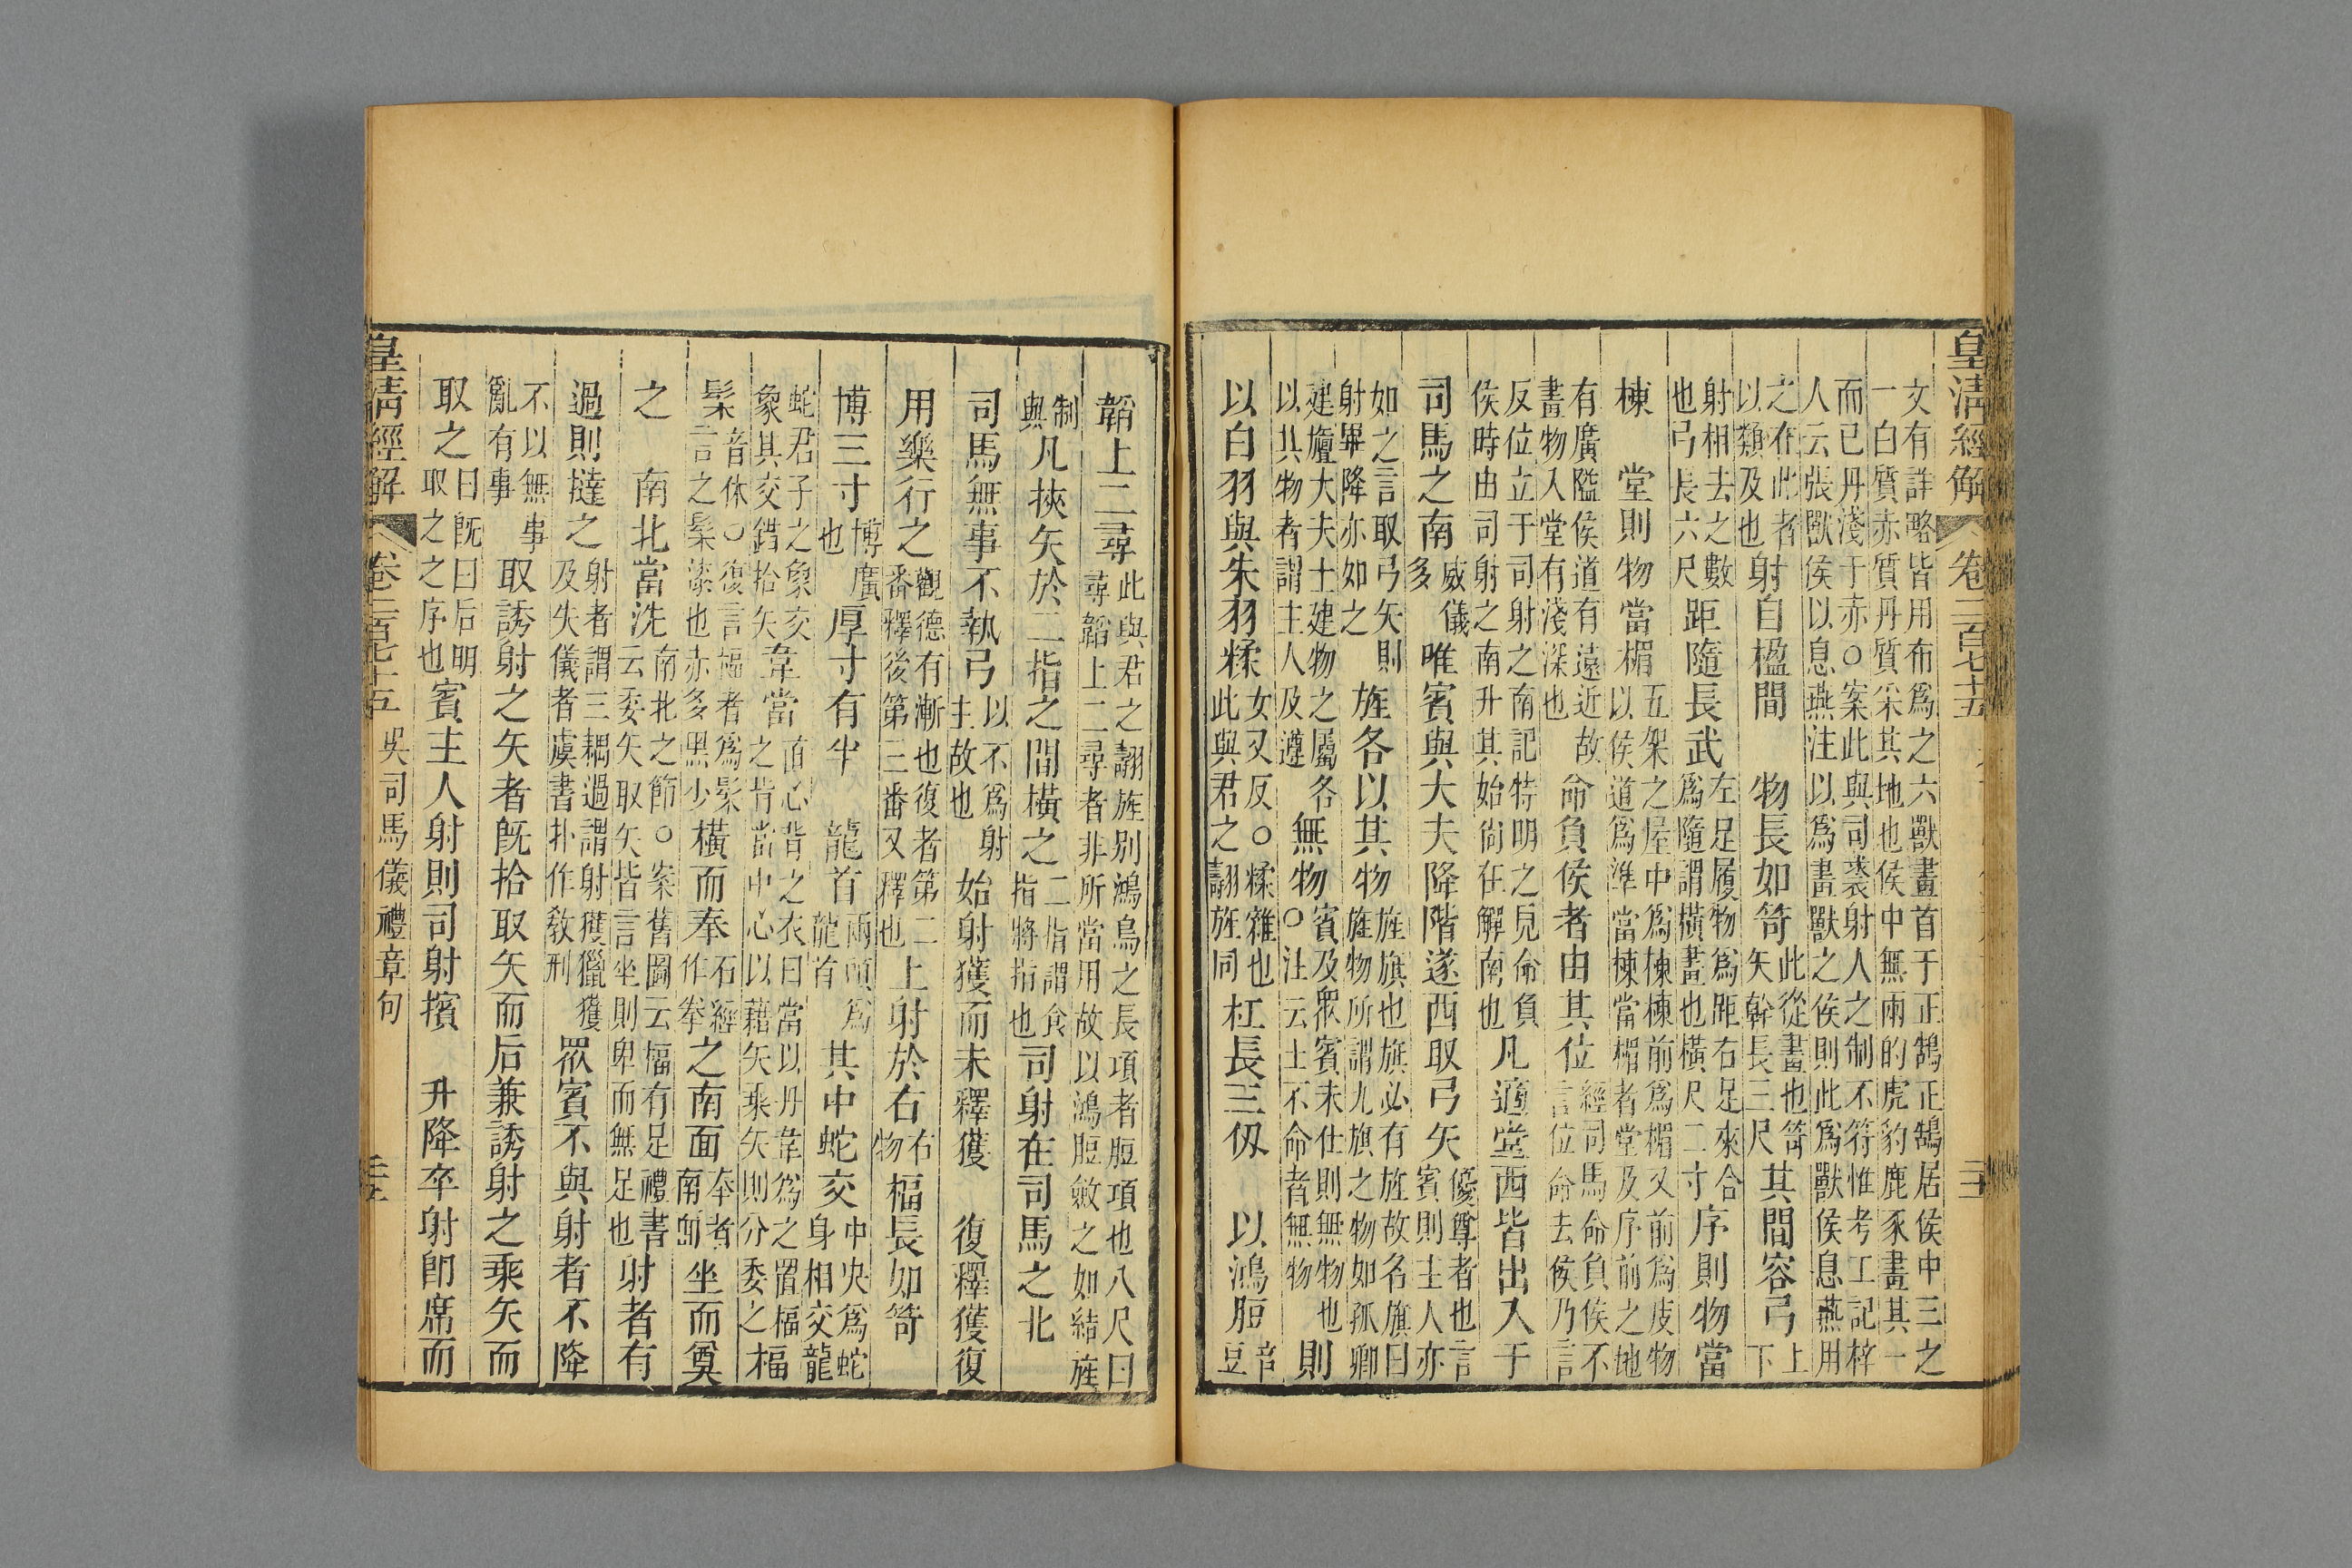 皇清經解 卷二百七十五 三
文有詳略皆用布爲之六獸畫首于正鵠正鵠居侯中三之
一白質赤質丹質采其地也侯中無兩的虎豹鹿豕畫其一
而已丹淺于赤○案此與司裘射人之制不符惟考工記梓
人云張獸侯以息燕注以爲畫獸之侯則此爲獸侯息燕用
之在此者以類及也射自楹間 物長如笴此從畫也笴矢幹長三尺其間容弓上下
射相去之數也弓長六尺距隨長武左足履物爲距右足來合爲隨謂橫畫也橫尺二寸序則物當
棟 堂則物當楣五架之屋中爲棟棟前爲楣又前爲庋物以侯道爲準當棟當楣者堂及序前之地
有廣隘侯道有遠近故畫物入堂有淺深也命負侯者由其位經司馬命負侯不言位命去侯乃言
反位立于司射之南記特明之見命負侯時由司射之南升其始尙在解南也凡適堂西皆出入于
司馬之南威儀多唯賓與大夫降階遂西取弓矢優尊者也言賓則主人亦
如之言取弓矢則射畢降亦如之旌各以其物旌旗也旗必有旌故名旗曰旌物所謂九旗之物如孤卿
建旜大夫士建物之屬各以其物者謂主人及遵無物賓及衆賓未仕則無物也○注云士不命者無物則
以白羽與朱羽糅女又反○糅雜也此與君之翿旌同杠長三仞 以鴻脰音豆
韜上二尋此與君之翿旌別鴻鳥之長項者脰項也八尺曰尋韜上二尋者非所當用故以鴻脰斂之如結旌
制與凡挾矢於二指之間橫之二指謂食指將指也司射在司馬之北
司馬無事不執弓以不爲射主故也始射獲而未釋獲 復釋獲復
用樂行之觀德有漸也復者第二番釋後第三番又釋也上射於右右物楅長如笴
博三寸博廣也厚寸有半 龍首兩頭爲龍首其中蛇交中央爲蛇身相交龍
蛇君子之象交象其交錯拾矢韋當直心背之衣曰當以丹韋爲之置楅之背當中心以藉矢乘矢則分委之楅
髤音休○復言楅者爲髤言之髤漆也赤多黑少橫而奉石經作拳之南面奉者南面坐而奠
之 南北當洗南北之節○案舊圖云楅有足禮書云委矢取矢皆言坐則卑而無足也射者有
過則撻之射者謂三耦過謂射獲獵獲及失儀者虞書扑作敎刑眾賓不與射者不降
不以無事亂有事取誘射之矢者旣拾取矢而后兼誘射之乘矢而
取之曰旣曰后明取之之序也賓主人射則司射擯 升降卒射卽席而
皇清經解 卷二百七十五 吳司馬儀禮章句